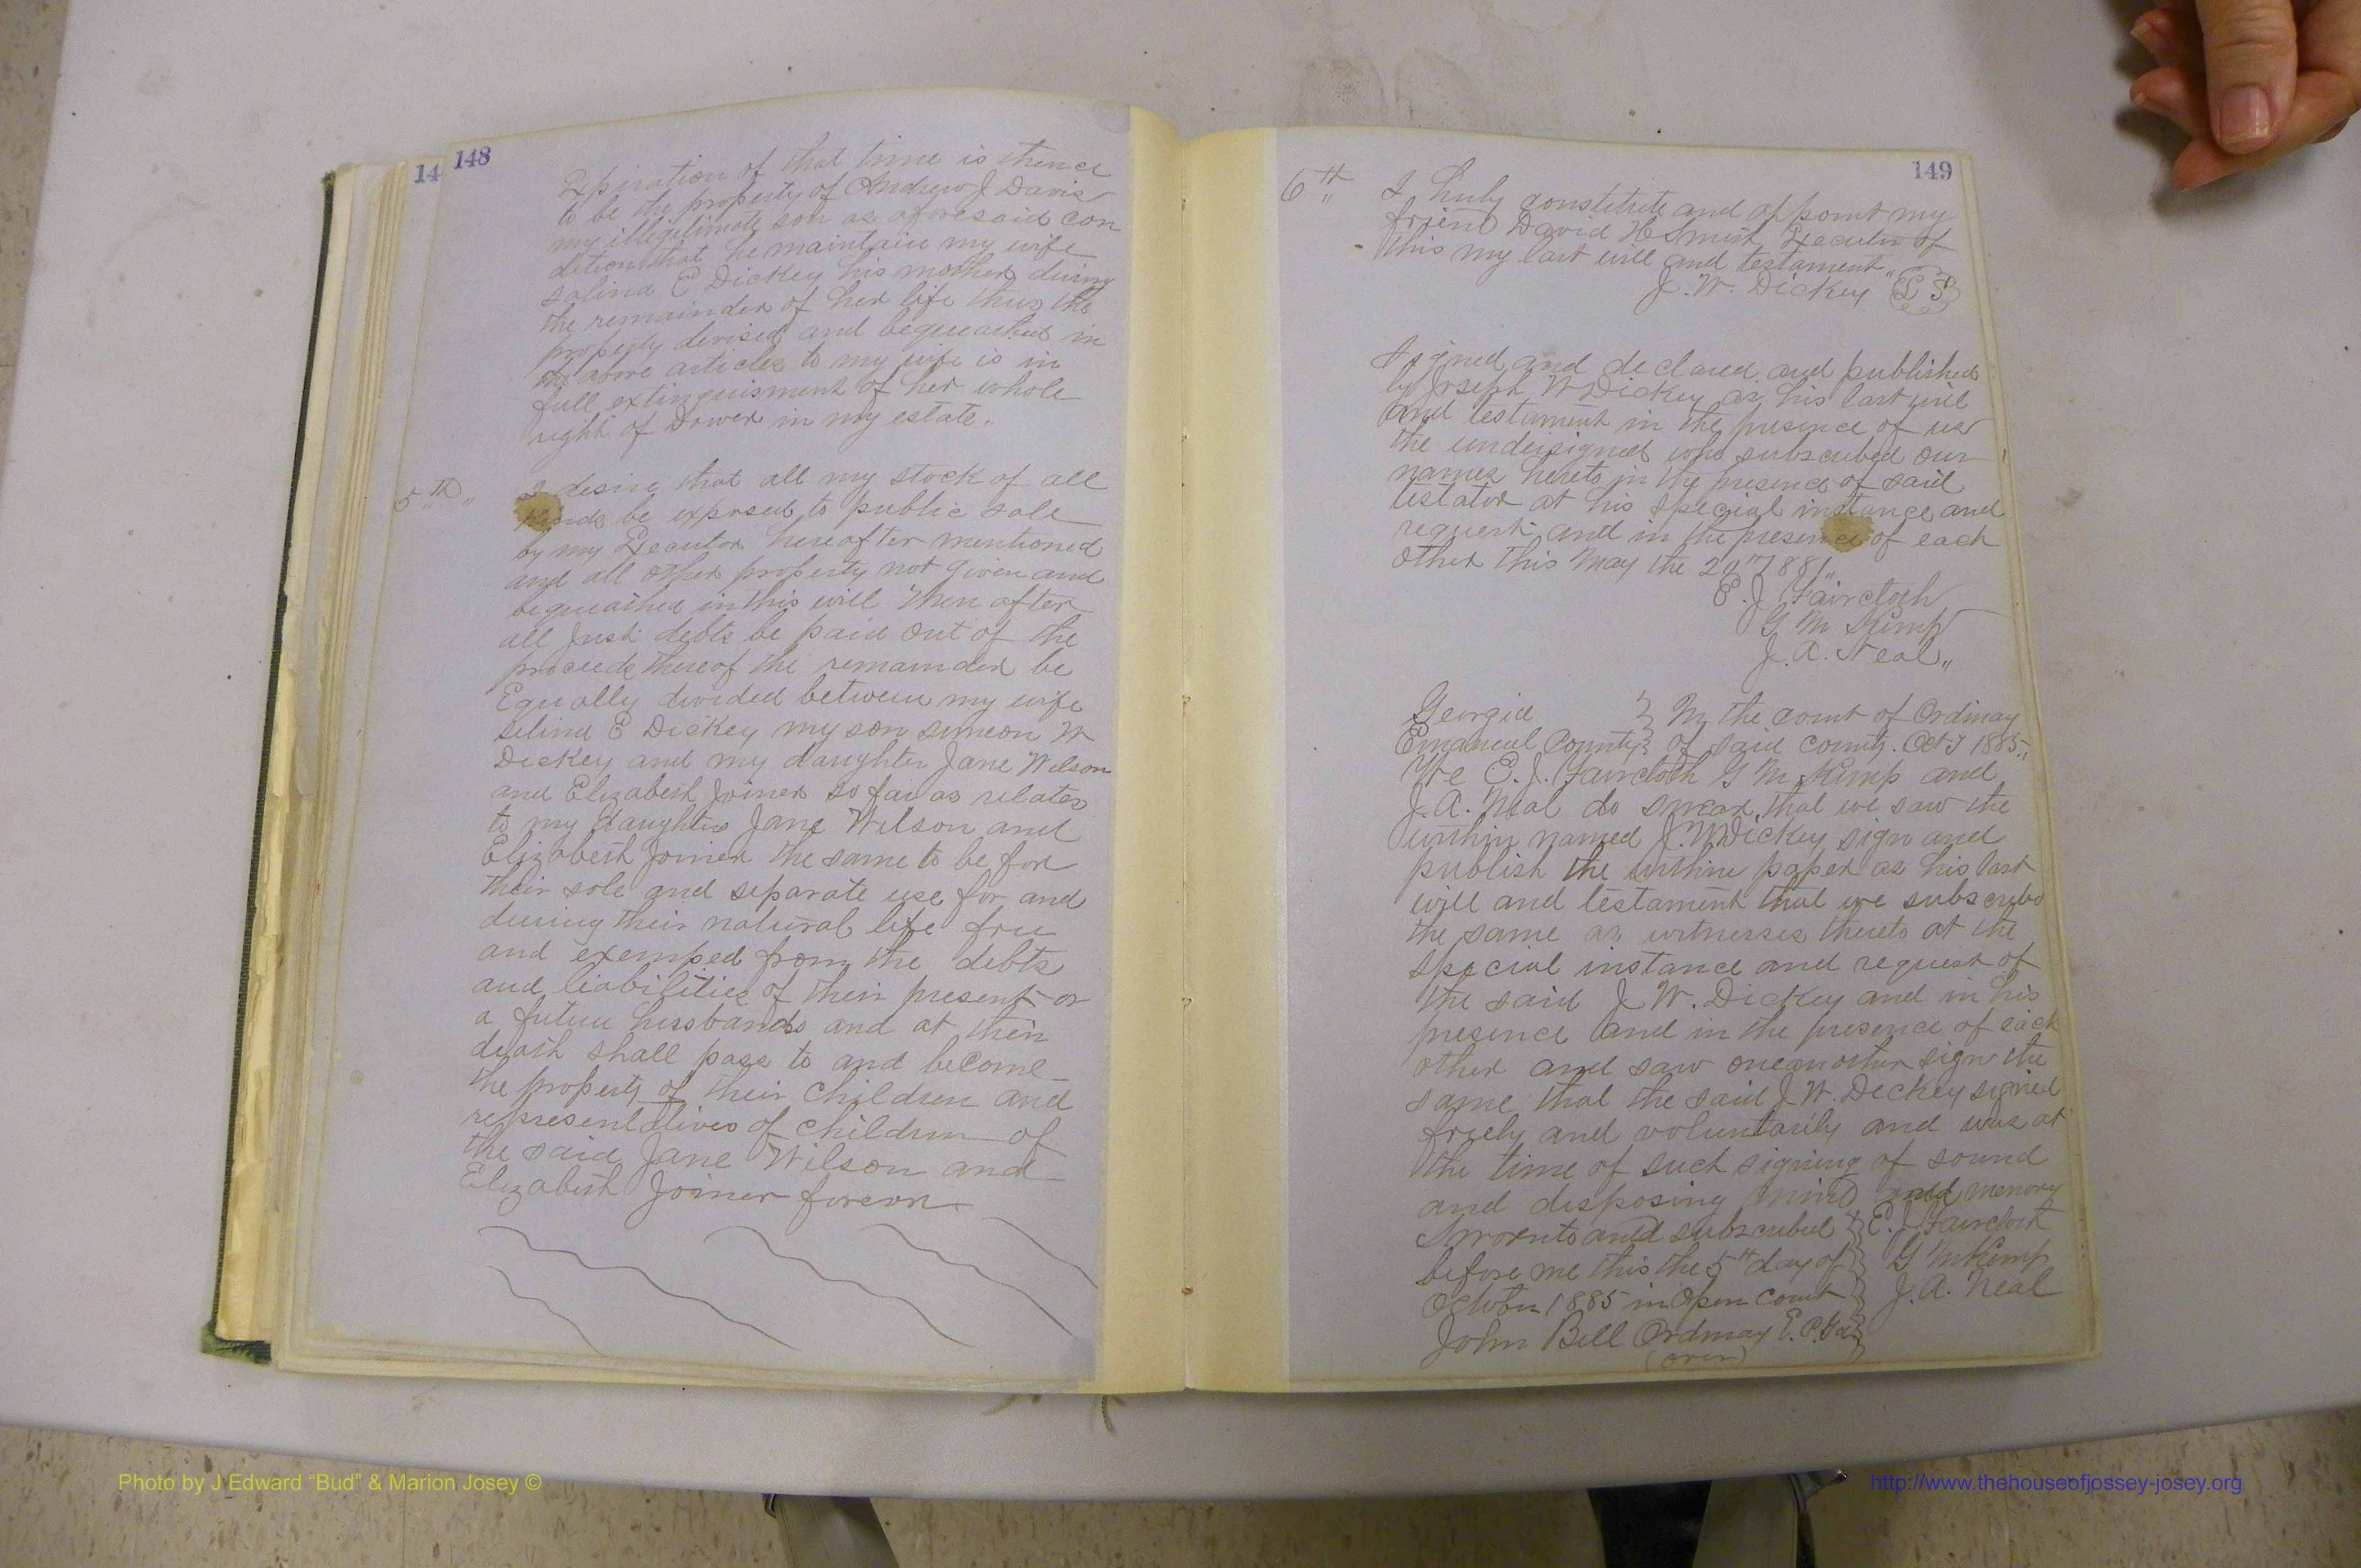 14 148
Expiration of that time is thence
to be the property of Andrew J Davis
my illegilimate son as aforesaid con
dition that he maintain my wife
Salina E Dickey his mother during
the remainder of her life thus the
property devised and bequeathed in
the above articles to my wife is in
full extinguisment of her whole
right of Dower in my estate.
5th I desire that all my stock of all
kinds be exposed to public sale
by my Executor hereafter mentioned
and all other property not given and
bequeathed in this will then after
all Just debts be paid out of the
proceeds thereof the remainder be
Equally divided between my wife
Selina E Dickey my son Simeon W
Dickey and my daughter Jane Wilson
and Elizabeth Joiner so far as relates
to my daughters Jane Wilson and
Elizabeth Joiner the same to be for
their sole and separate use for and
during their natural life free
and exemped from the debts
and liabilities of their present or
a future husbands and at their
death shall pass to and become
the property of their children and
representatives of children of
the said Jane Wilson and
Elizabeth Joiner
149
6th I constitute and appoint my
friend David H Smith Executor of
this my last will and testament
J. W. Dickey L S
Signed and declared and published
by Joseph W Dickey as his last will
and testament in the presence of us
the undersigned who subscribed our
names hereto in the presence of said
testator at his special instance and
request and in the presence of each
other this May the 20th 1881
E. J. Faircloth
G M Kemp
J. A. Neal
Georgia } In the court of Ordinary
Emanuel County } of said county. Oct 1885
We E. J. Faircloth G M Kemp and
J. A. Neal do swear that we saw the
within named J. W. Dickey sign and
publish the within paper as his last
will and testament that we subscribed
the same as witnesses thereto at the
special instance and request of
the said J W. Dickey and in his
presence and in the presence of each
other and saw one another sign the
same that the said J. W. Dickey signed
freely and voluntarily and was at
the time of such signing of sound
and disposing mind and memory
Sworn to and subscribed } E. J. Faircloth
before me this the 5th day of } G M Kemp
October 1885 in Open Court } J. A. Neal
John Bell Ordinary E. C. Ga
(over)
Photo by J Edward “Bud” & Marion Josey ©
http://www.thehouseofjossey-josey.org